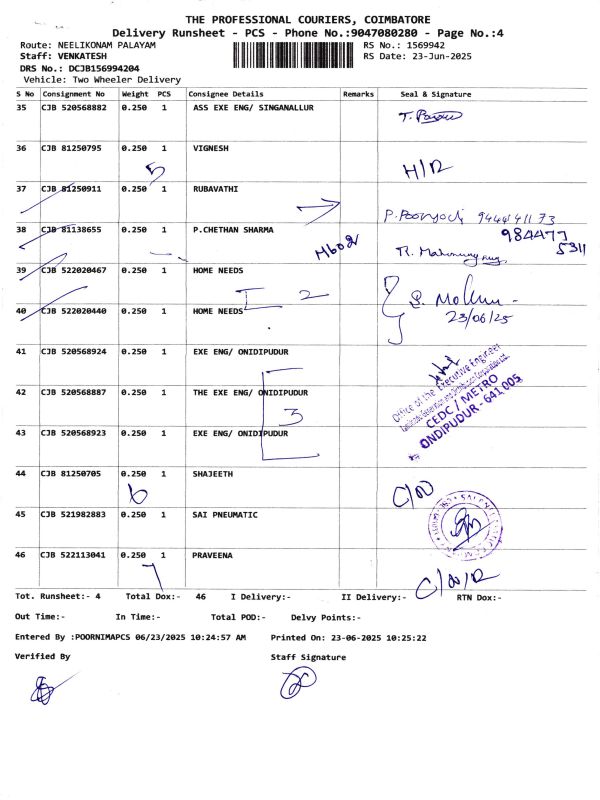 THE PROFESSIONAL COURIERS, COIMBATORE
Delivery Runsheet - PCS - Phone No.:9047080280 - Page No.:4
Route: NEELIKONAM PALAYAM
RS No.: 1569942
Staff: VENKATESH
RS Date: 23-Jun-2025
DRS No.: DCJB156994204
Vehicle: Two Wheeler Delivery
S No Consignment No Weight PCS Consignee Details Remarks Seal & Signature
35 CJB 520568882 0.250 1 ASS EXE ENG/ SINGANALLUR
36 CJB 81250795 0.250 1 VIGNESH
5 H/R
37 CJB 81250911 0.250 1 RUBAVATHI
38 CJB 81138655 0.250 1 P.CHETHAN SHARMA
984477
5311
39 CJB 522020467 0.250 1 HOME NEEDS
2
40 CJB 522020440 0.250 1 HOME NEEDS
23/06/25
41 CJB 520568924 0.250 1 EXE ENG/ ONIDIPUDUR
42 CJB 520568887 0.250 1 THE EXE ENG/ ONIDIPUDUR
3
Office of the Executive Engineer
CEDC / METRO
ONDIPUDUR - 641 005
43 CJB 520568923 0.250 1 EXE ENG/ ONIDIPUDUR
44 CJB 81250705 0.250 1 SHAJEETH
6
45 CJB 521982883 0.250 1 SAI PNEUMATIC
46 CJB 522113041 0.250 1 PRAVEENA
7
Tot. Runsheet:- 4 Total Dox:- 46 I Delivery:- II Delivery:- RTN Dox:-
Out Time:- In Time:- Total POD:- Delvy Points:-
Entered By :POORNIMAPCS 06/23/2025 10:24:57 AM Printed On: 23-06-2025 10:25:22
Verified By Staff Signature